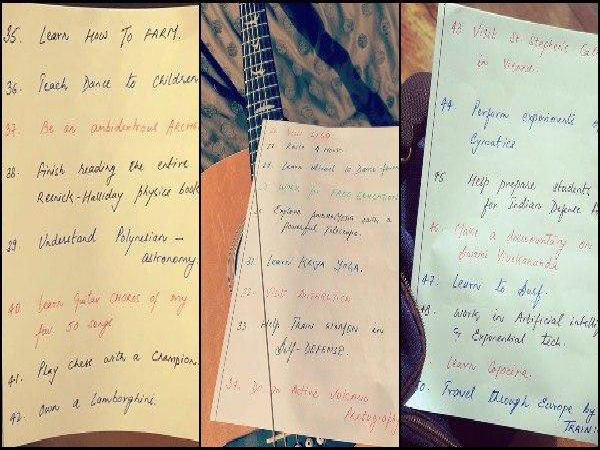 35. Learn How To FARM.
36. Teach Dance to Children
37. Be an ambidextrous Archer
38. Finish reading the entire
Resnick-Halliday physics book
39. Understand Polynesian –
astronomy.
40. Learn Guitar CHORDS of my
fav. 50 songs
41. Play Chess with a Champion.
42. Own a Lamborghini.
Raise a Horse.
Learn
to Dance
WORK for FREE
Explore
with a
powerful Telescope.
Learn KRIYA YOGA.
32. VISIT
33. Help Train WOMEN in
Self-DEFENSE.
34. Do an Active Volcano
Photography
43. Visit St. Stephen's
in Vienna.
44. Perform experiments
Cymatics
45. Help prepare students
for Indian Defense
46. Make a documentary on
Swami Vivekananda
47. Learn to Surf.
48. Work in Artificial intelli
& Exponential tech.
Learn Capoeira.
0. Travel through Europe by
TRAIN